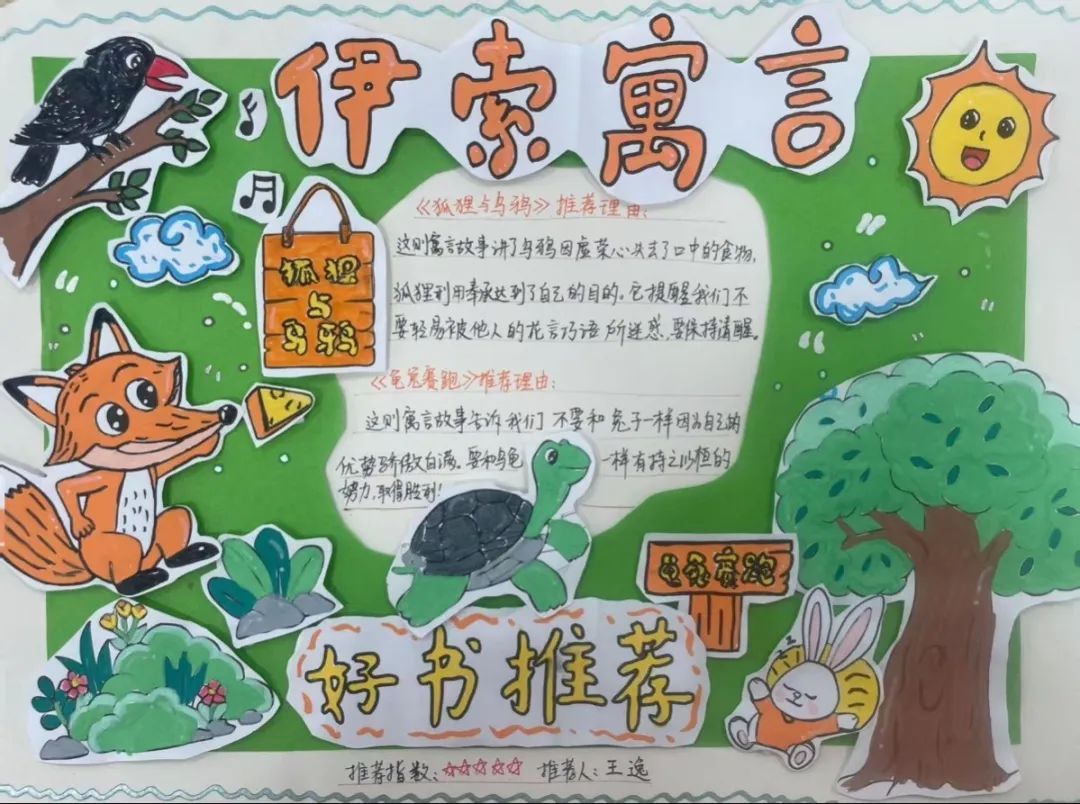 伊索寓言
狐狸
与
乌鸦
《狐狸与乌鸦》推荐理由:
这则寓言故事讲了乌鸦因虚荣心失去了口中的食物,
狐狸利用奉承达到了自己的目的。它提醒我们不
要轻易被他人的花言巧语所迷惑,要保持清醒。
《龟兔赛跑》推荐理由:
这则寓言故事告诉我们 不要和兔子一样因为自己的
优势骄傲自满。要和乌龟 一样有持之以恒的
努力,取得胜利!
龟兔赛跑
zz
好书推荐
推荐指数:☆☆☆☆☆ 推荐人:王逸